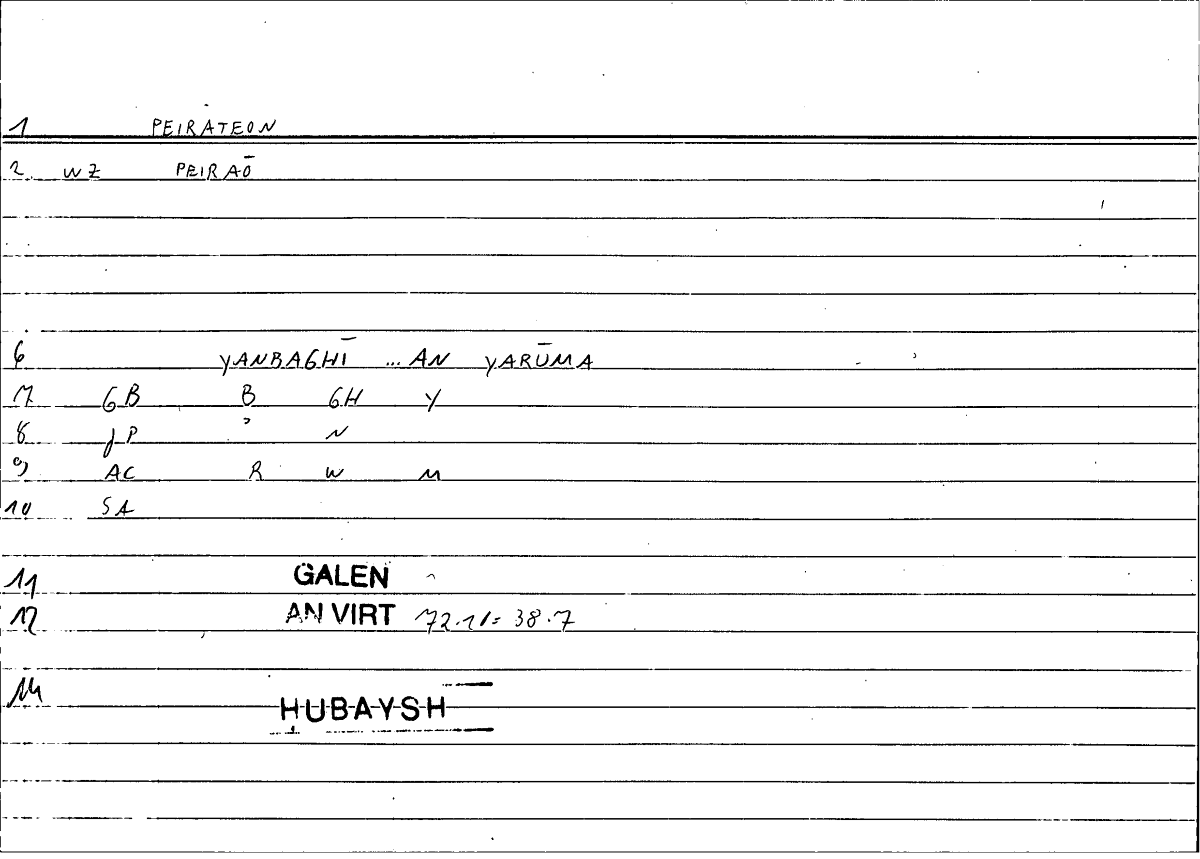 1 PEIRATEON
2 WZ PEIRAŌ
6 YANBAGHĪ ... AN YARŪMA
7 GB B GH Y
8 JP ʾ N
9 AC R W M
10 SA
11 GALEN
12 AN VIRT 72.11= 38.7
14 HUBAYSH